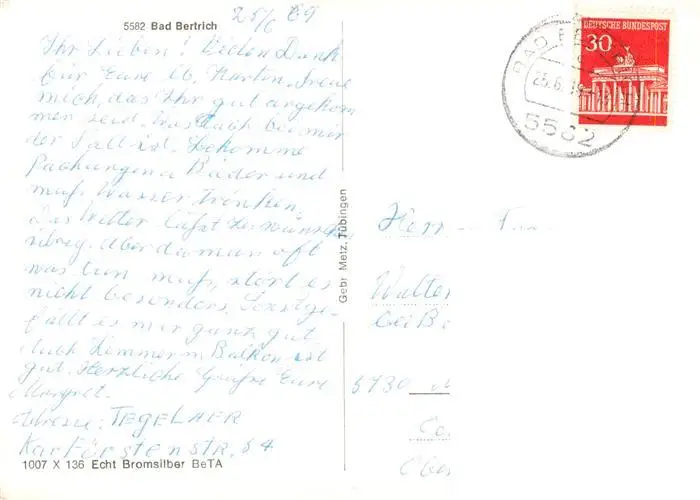 5582 Bad Bertrich
25/6 69
Ihr Lieben! Vielen Dank
für Eure lb. Karten. Freue
mich, das Ihr gut angekom
men seid. Was auch bei mir
der Fall ist. Bekomme
Packungen u Bäder und
muß Wasser trinken.
das Wetter läßt zu wünschen
übrig. Aber da man oft
was tun muß, stört es
nicht besonders. Sonst ge-
fällt es mir ganz gut
auch Zimmer m Balkon ist
gut. Herzliche Grüße Eure
Margret.
Adresse: TEGELAER
Kurfürstenstr. 54
1007 X 136 Echt Bromsilber BeTA
Gebr Metz, Tübingen
DEUTSCHE BUNDESPOST
30
5582
Herrn
Walter
bei